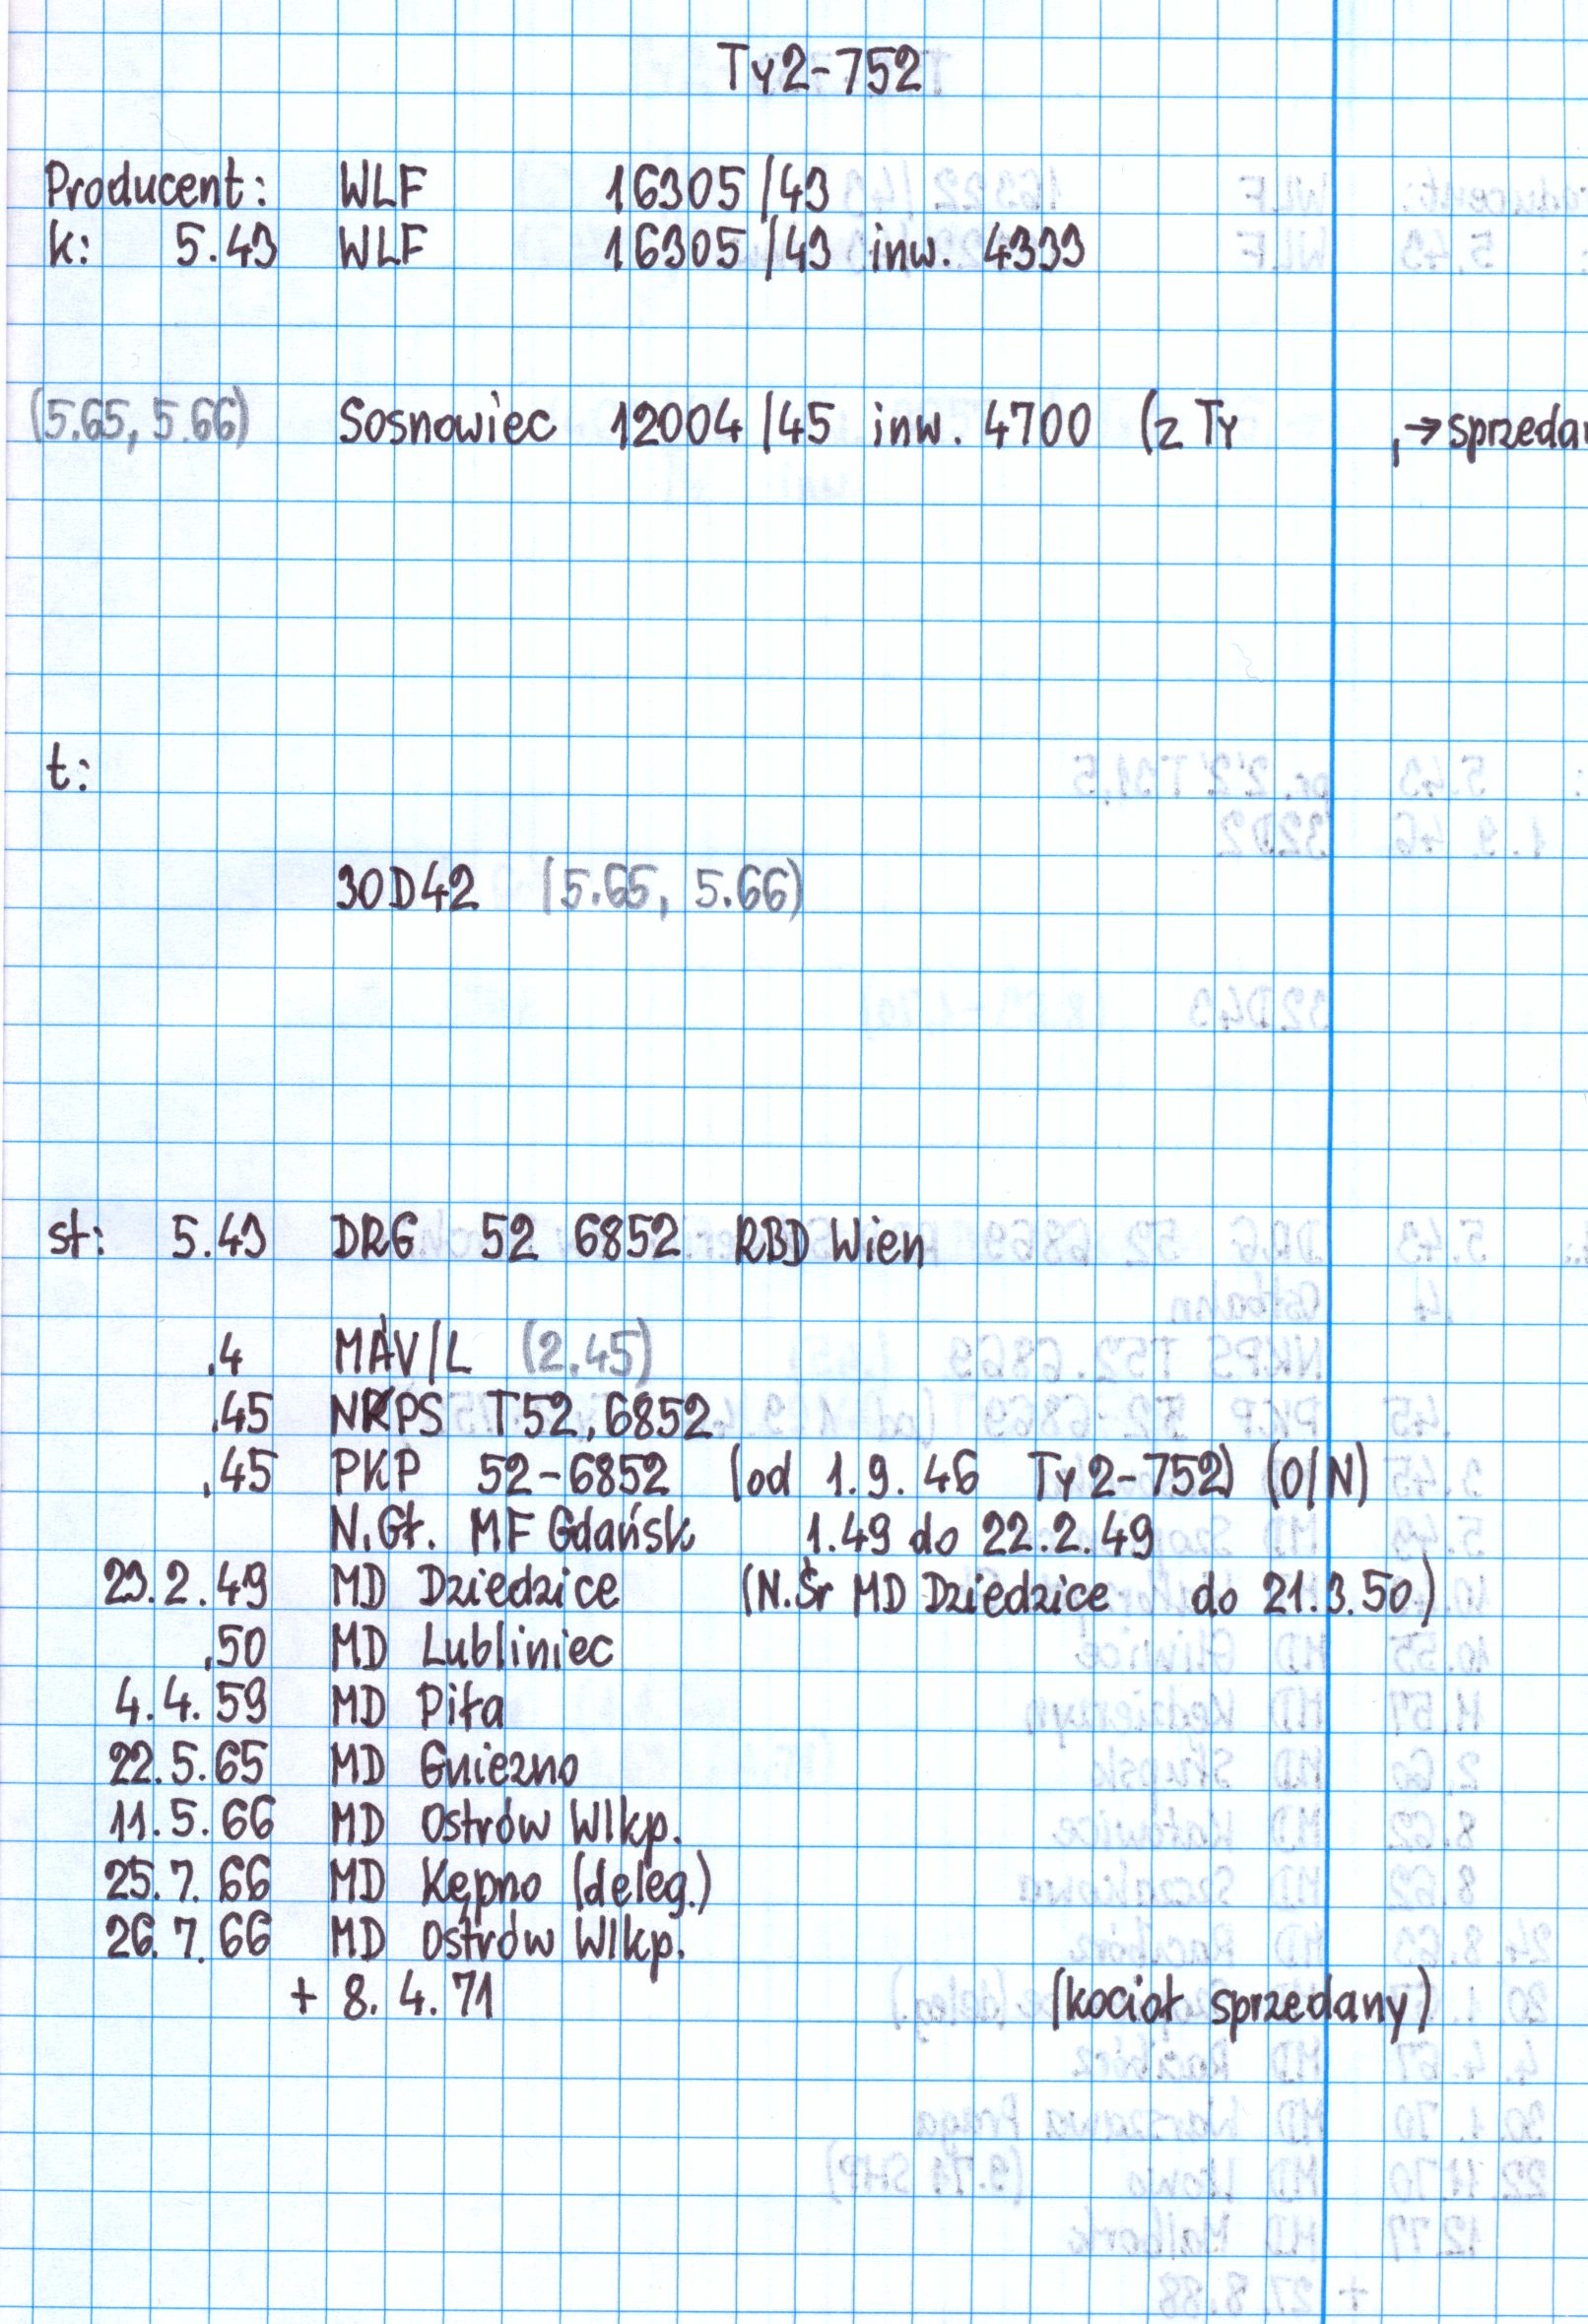 Ty2-752
Producent: WLF 16305/43
k: 5.43 WLF 16305/43 inw. 4333
(5.65, 5.66) Sosnowiec 12004/45 inw. 4700 (z Ty ,→sprzedan
t:
30D42 (5.65, 5.66)
st: 5.43 DRG 52 6852 RBD Wien
.4 MÁV/L (2.45)
.45 NKPS T52.6852
.45 PKP 52-6852 (od 1.9.46 Ty2-752) (O/N)
N.Gł. MF Gdańsk 1.49 do 22.2.49
23.2.49 MD Dziedzice (N.Śr MD Dziedzice do 21.3.50)
.50 MD Lubliniec
4.4.59 MD Piła
22.5.65 MD Gniezno
11.5.66 MD Ostrów Wlkp.
25.7.66 MD Kępno (deleg.)
26.7.66 MD Ostrów Wlkp.
+ 8.4.71 (kocioł sprzedany)